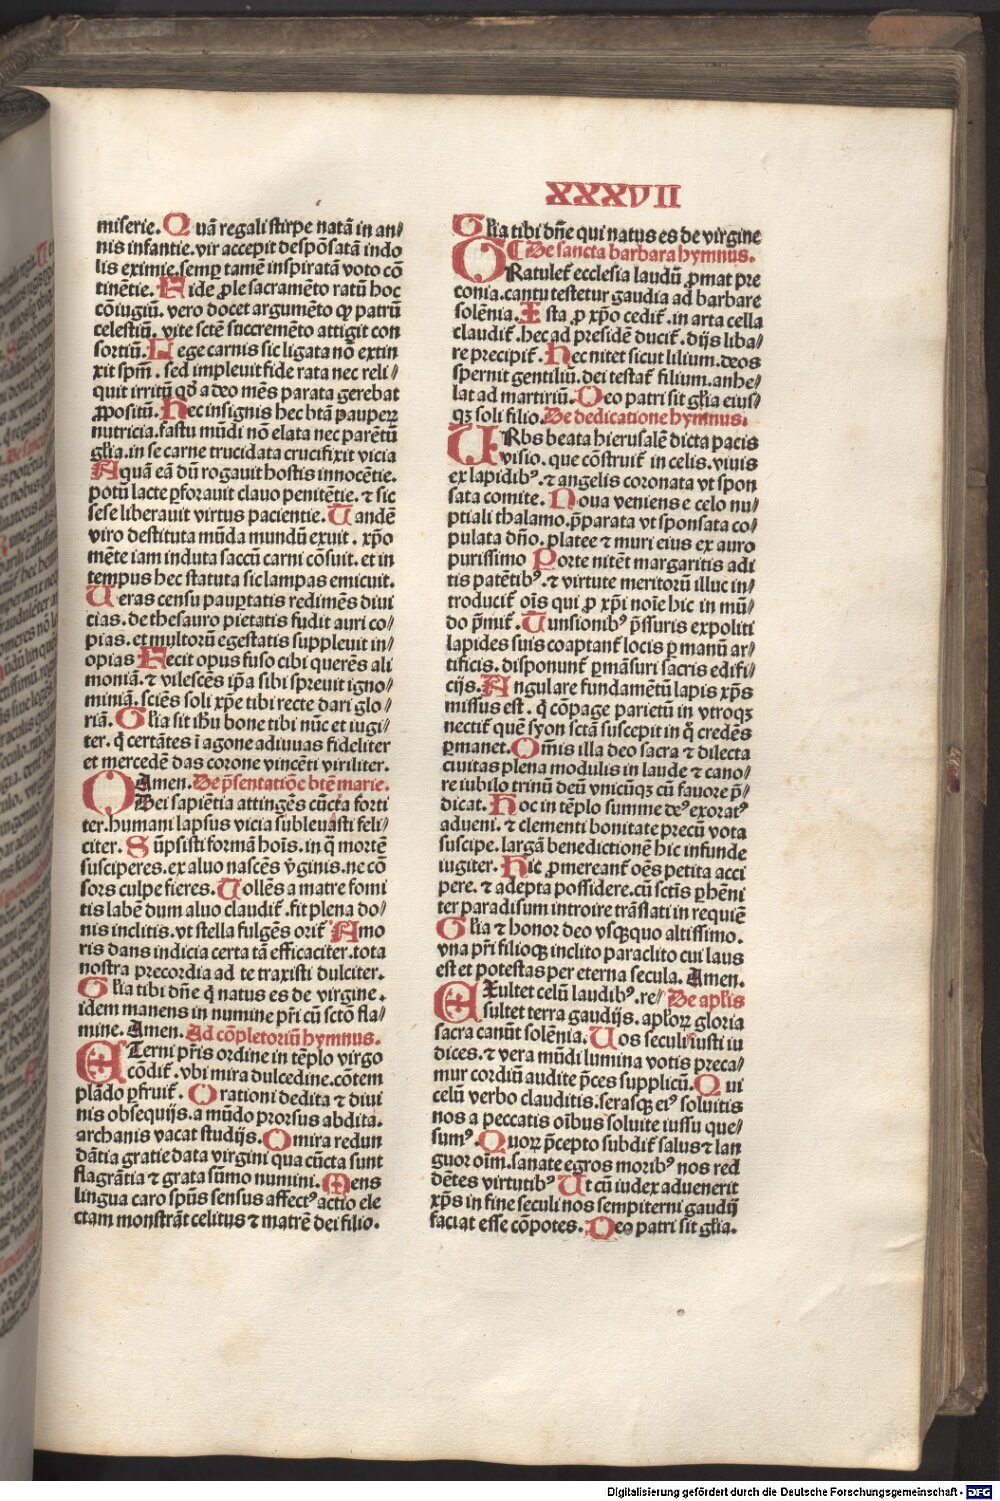 XXXVII
miserie. Quā regali stirpe natā in an⸗
nis infantie. vir accepit despōsatā indo
lis eximie. semꝑ tamē inspiratā voto cō
tinētie. Fide ꝓle sacramēto ratū hoc
cōiugiū. vero docet argumēto ꝙ patrū
celestiū. vite sctē succremēto attigit con
sortiū. Lege carnis sic ligata nō extin
xit spm̄. sed impleuit fide rata nec reli⸗
quit irritū qd̄ a deo mēs parata gerebat
ꝓpositū. Hec insignis hec btā pauperꝝ
nutricia. fastu mūdi nō elata nec parētū
gl̄ia. in se carne trucidata crucifixit vicia
Aquā eā dū rogauit hostis innocētie.
potū lacte ꝑforauit clauo penitētie. ⁊ sic
sese liberauit virtus pacientie. Tandē
viro destituta mūda mundū exuit. xp̄o
mēte iam induta saccū carni cōsuit. et in
tempus hec statuta sic lampas emicuit.
Ueras censu pauꝑtatis redimēs diui
cias. de thesauro pietatis fudit auri co⸗
pias. et multorū egestatis suppleuit in⸗
opias Fecit opus fuso cibi querēs ali
moniā. ⁊ vilescēs ip̄a sibi spreuit igno⸗
miniā. sciēs soli xp̄e tibi recte dari glo⸗
riā. Gl̄ia sit ih̄u bone tibi nūc et iugi⸗
ter. q̄ certātes ī agone adiuuas fideliter
et mercedē das corone vincēti viriliter.
Amen. De p̄sentatiōe btē marie.
O Dei sapiētia attingēs cūcta forti
ter. humani lapsus vicia subleuasti feli⸗
citer. Sūpsisti formā hoīs. in q̄ mortē
susciperes. ex aluo nascēs v̄ginis. ne cō
sors culpe fieres. Tollēs a matre fomi
tis labē dum aluo claudit̄. fit plena do⸗
nis inclitis. vt stella fulgēs orit̄ Amo
ris dans indicia certa tā efficaciter. tota
nostra precordia ad te traxisti dulciter.
Gl̄ia tibi dn̄e q̄ natus es de virgine.
idem manens in numine pr̄i cū sctō fla⸗
mine. Amen. Ad cōpletoriū hymnus.
ETerni pr̄is ordine in tēplo virgo
cōdit̄. vbi mira dulcedine. cōtem
plādo ꝑfruit̄. Orationi dedita ⁊ diui
nis obsequijs. a mūdo prorsus abdita.
archanis vacat studijs. O mira redun
dātia gratie data virgini qua cūcta sunt
flagrātia ⁊ grata sūmo numini. Mens
lingua caro spūs sensus affectꝰ actio ele
ctam monstrāt celitus ⁊ matrē dei filio.
Gl̄ia tibi dn̄e qui natus es de virgine
De sancta barbara hymnus.
GRatulet̄ ecclesia laudū ꝓmat pre
conia. cantu testetur gaudia ad barbare
solēnia. Ista ꝓ xp̄o cedit̄. in arta cella
claudit̄. hec ad presidē ducit̄. dijs liba⸗
re precipit̄. Hec nitet sicut lilium. deos
spernit gentiliū. dei testat̄ filium. anhe⸗
lat ad martiriū. Deo patri sit gl̄ia eius⸗
qꝫ soli filio. De dedicatione hymnus.
URbs beata hierusalē dicta pacis
visio. que cōstruit̄ in celis. viuis
ex lapidibꝰ. ⁊ angelis coronata vt spon
sata comite. Noua veniens e celo nu⸗
ptiali thalamo. p̄parata vt sponsata co⸗
pulata dn̄o. platee ⁊ muri eius ex auro
purissimo Porte nitēt margaritis adi
tis patētibꝰ. ⁊ virtute meritorū illuc in⸗
troducit̄ oīs qui ꝓ xp̄i noīe hic in mū⸗
do p̄mit̄. Tunsionibꝰ p̄ssuris expoliti
lapides suis coaptant̄ locis ꝑ manū ar⸗
tificis. disponunt̄ ꝑmāsuri sacris edifi⸗
cijs. Angulare fundamētū lapis xp̄s
missus est. q̄ cōpage parietū in vtroqꝫ
nectit̄ quē syon sctā suscepit in q̄ credēs
ꝑmanet. Om̄is illa deo sacra ⁊ dilecta
ciuitas plena modulis in laude ⁊ cano⸗
re iubilo trinū deū vnicūqꝫ cū fauore p̄⸗
dicat. Hoc in tēplo summe deꝰ exoratꝰ
adueni. ⁊ clementi bonitate precū vota
suscipe. largā benedictionē hic infunde
iugiter. Hic ꝓmereant̄ oēs petita acci
pere. ⁊ adepta possidere. cū sctīs ꝑhēni
ter paradisum introire trāslati in requiē
Gl̄ia ⁊ honor deo vsqꝫquo altissimo.
vna pr̄i filioqꝫ inclito paraclito cui laus
est et potestas per eterna secula. Amen.
EXultet celū laudibꝰ. re⸗ De apl̄is
sultet terra gaudijs. apl̄oꝝ gloria
sacra canūt solēnia. Uos seculi iusti iu
dices. ⁊ vera mūdi lumina votis preca⸗
mur cordiū audite p̄ces supplicū. Qui
celū verbo clauditis. serasqꝫ eiꝰ soluitis
nos a peccatis oībus soluite iussu que⸗
sumꝰ. Quoꝝ p̄cepto subdit̄ salus ⁊ lan
guor oīm. sanate egros moribꝰ nos red
dētes virtutibꝰ Ut cū iudex aduenerit
xp̄s in fine seculi nos sempiterni gaudij
faciat esse cōpotes. Deo patri sit gl̄ia.
Digitalisierung gefördert durch die Deutsche Forschungsgemeinschaft - DFG